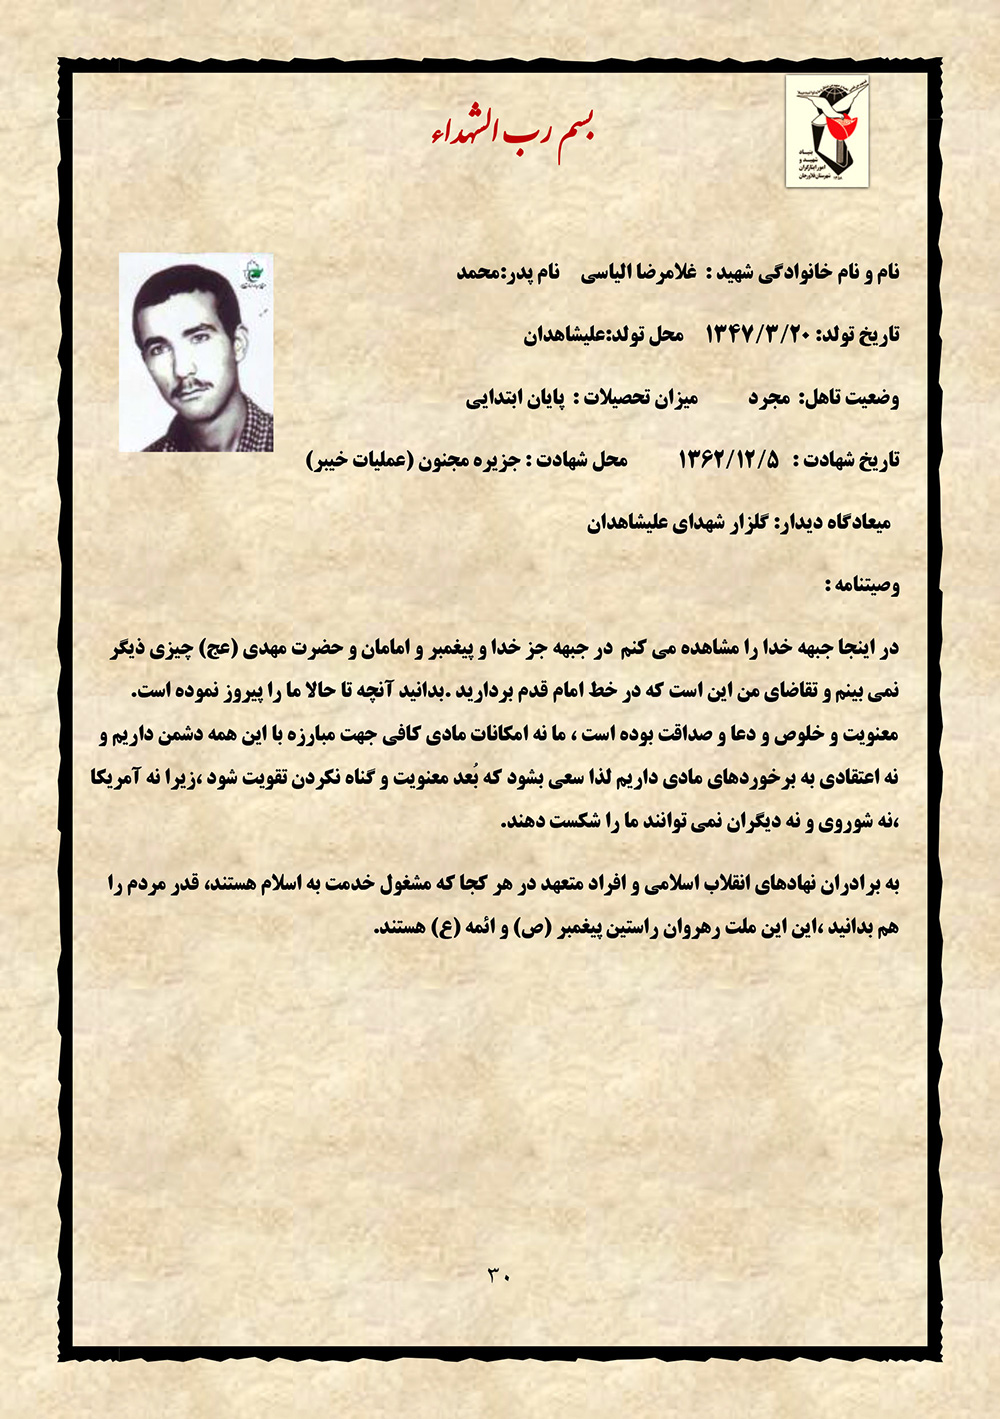 بسم رب الشهداء
بنیاد
شهید و
امور ایثارگران
شهرستان فلاورجان
نام و نام خانوادگی شهید : غلامرضا الیاسی نام پدر:محمد
تاریخ تولد: ۱۳۴۷/۳/۲۰ محل تولد:علیشاهدان
وضعیت تاهل: مجرد میزان تحصیلات : پایان ابتدایی
تاریخ شهادت : ۱۳۶۲/۱۲/۵ محل شهادت : جزیره مجنون (عملیات خیبر)
میعادگاه دیدار: گلزار شهدای علیشاهدان
وصیتنامه :
در اینجا جبهه خدا را مشاهده می کنم در جبهه جز خدا و پیغمبر و امامان و حضرت مهدی (عج) چیزی ذیگر
نمی بینم و تقاضای من این است که در خط امام قدم بردارید .بدانید آنچه تا حالا ما را پیروز نموده است.
معنویت و خلوص و دعا و صداقت بوده است ، ما نه امکانات مادی کافی جهت مبارزه با این همه دشمن داریم و
نه اعتقادی به برخوردهای مادی داریم لذا سعی بشود که بُعد معنویت و گناه نکردن تقویت شود ،زیرا نه آمریکا
،نه شوروی و نه دیگران نمی توانند ما را شکست دهند.
به برادران نهادهای انقلاب اسلامی و افراد متعهد در هر کجا که مشغول خدمت به اسلام هستند، قدر مردم را
هم بدانید ،این این ملت رهروان راستین پیغمبر (ص) و ائمه (ع) هستند.
۳۰